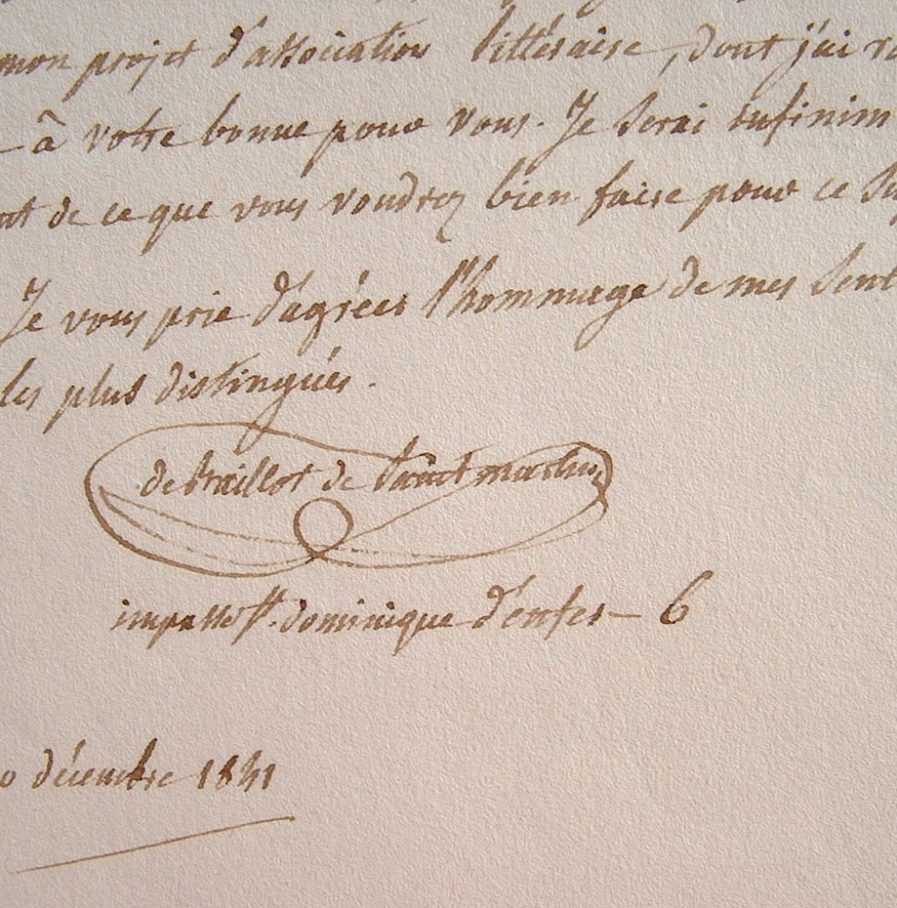 mon projet d'association littéraire, dont j'ai
à votre bonne pour vous. Je serai infinim
de ce que vous voudrez bien faire pour ce
Je vous prie d'agréer l'hommage de mes sent
les plus distingués.
de braillot de Saint martin
impasse St. dominique d'enfer - 6
0 décembre 1841